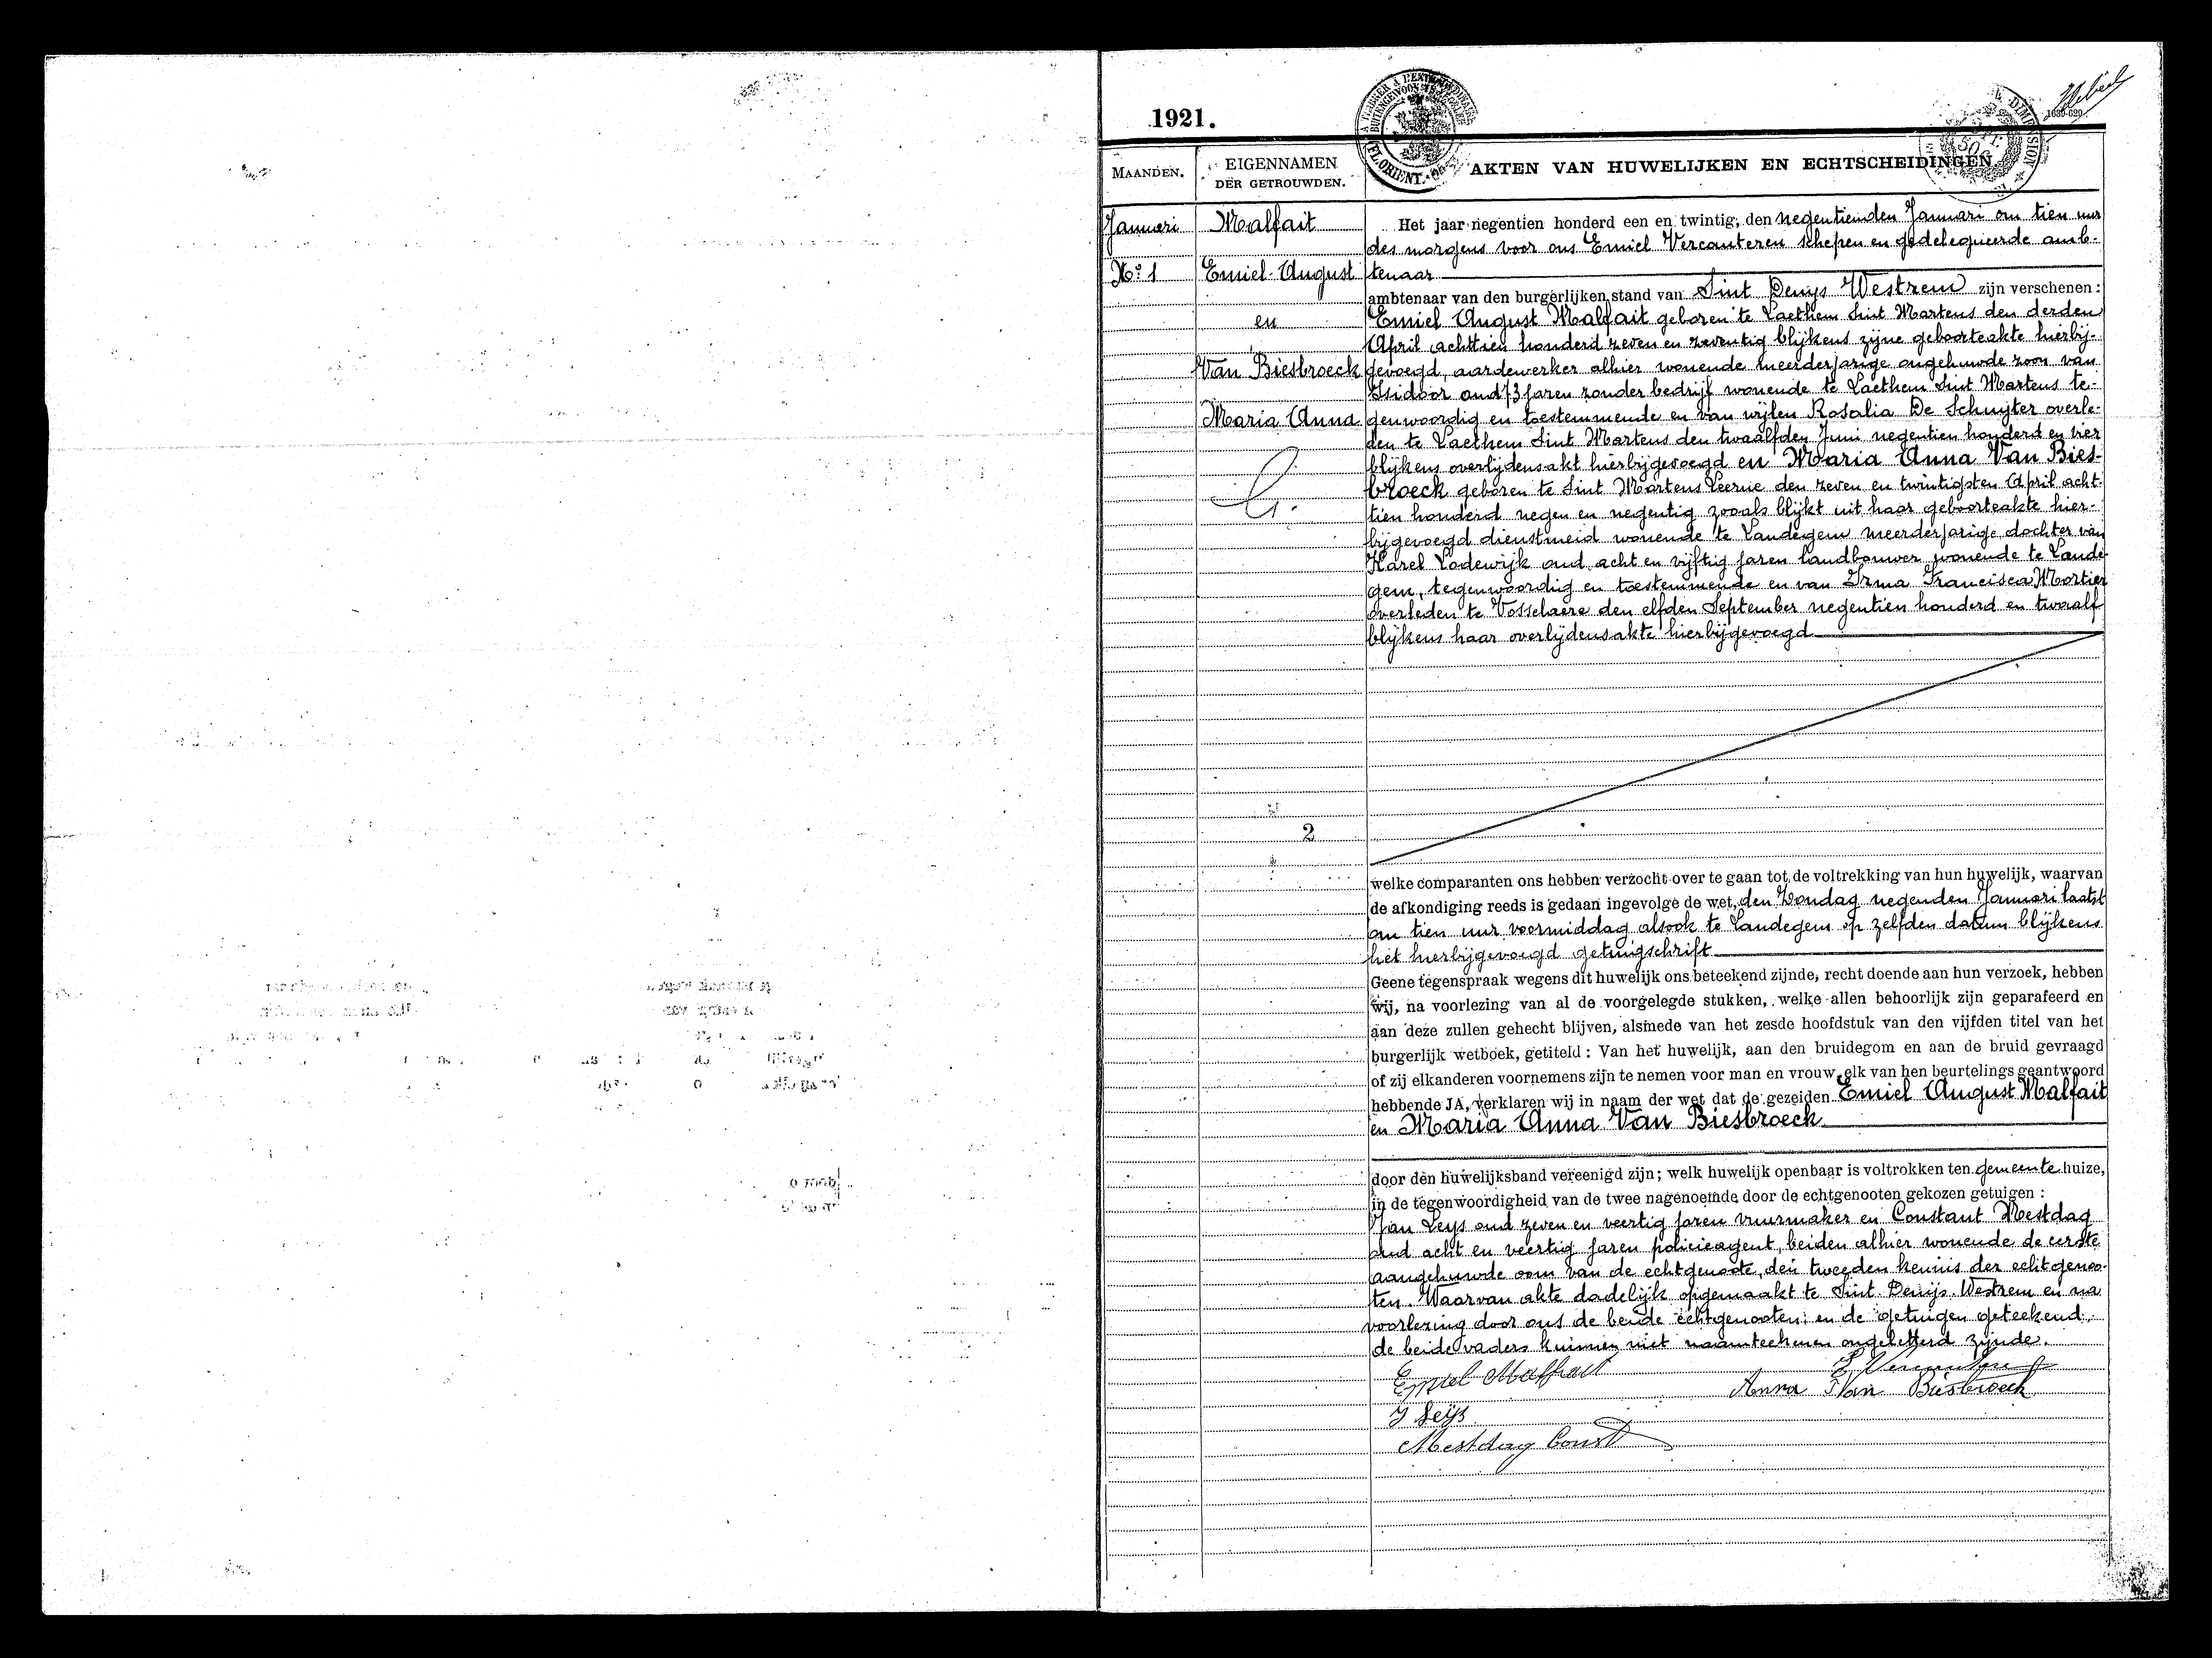 1921.
MAANDEN.
EIGENNAMEN
DER GETROUWDEN.
AKTEN VAN HUWELIJKEN EN ECHTSCHEIDINGEN
Januari
No 1
Malfait
Emiel August
en
Van Biesbroeck
Maria Anna
2
Het jaar negentien honderd een en twintig, den negentienden Januari om tien uur
des morgens voor ons Emiel Vercauteren schepen en gedelegueerde amb-
tenaar
ambtenaar van den burgerlijken stand van Sint Denys Westrem zijn verschenen:
Emiel August Malfait geboren te Laethem Sint Martens den derden
April achttien honderd zeven en zeventig blijkens zijne geboorteakte hierbij-
gevoegd, aardewerker alhier wonende meerderjarige ongehuwde zoon van
Isidoor oud 73 jaren zonder bedrijf wonende te Laethem Sint Martens te-
genwoordig en toestemmende en van wijlen Rosalia De Schuyter overle-
den te Laethem Sint Martens den twaalfden Juni negentien honderd en vier
blijkens overlijdensakt hierbijgevoegd en Maria Anna Van Bies-
broeck geboren te Sint Martens Leerne den zeven en twintigsten April acht-
tien honderd negen en negentig zooals blijkt uit haar geboorteakte hier-
bijgevoegd dienstmeid wonende te Landegem meerderjarige dochter van
Karel Lodewijk oud acht en vijftig jaren landbouwer wonende te Lande-
gem, tegenwoordig en toestemmende en van Irma Francisca Mortier
overleden te Vosselaere den elfden September negentien honderd en twaalf
blijkens haar overlijdensakte hierbijgevoegd
welke comparanten ons hebben verzocht over te gaan tot de voltrekking van hun huwelijk, waarvan
de afkondiging reeds is gedaan ingevolge de wet, den Zondag negenden Januari laatst
om tien uur voormiddag alsook te Landegem op zelfden datum blijkens
het hierbijgevoegd getuigschrift
Geene tegenspraak wegens dit huwelijk ons beteekend zijnde, recht doende aan hun verzoek, hebben
wij, na voorlezing van al de voorgelegde stukken, welke allen behoorlijk zijn geparafeerd en
aan deze zullen gehecht blijven, alsmede van het zesde hoofdstuk van den vijfden titel van het
burgerlijk wetboek, getiteld: Van het huwelijk, aan den bruidegom en aan de bruid gevraagd
of zij elkanderen voornemens zijn te nemen voor man en vrouw, elk van hen beurtelings geantwoord
hebbende JA, verklaren wij in naam der wet dat de gezeiden Emiel August Malfait
en Maria Anna Van Biesbroeck
door den huwelijksband vereenigd zijn; welk huwelijk openbaar is voltrokken ten gemeente huize,
in de tegenwoordigheid van de twee nagenoemde door de echtgenooten gekozen getuigen:
Jan Leys oud zeven en veertig jaren vuurmaker en Constant Mestdag
oud acht en veertig jaren policieagent, beiden alhier wonende de eerste
aangehuwde oom van de echtgenoote, den tweeden kennis der echtgenoo-
ten. Waarvan akte dadelijk opgemaakt te Sint Denijs Westrem en na
voorlezing door ons de beide echtgenooten en de getuigen geteekend,
de beide vaders kunnen niet naamteekenen ongeletterd zijnde.
Emiel Malfait
Anna Van Biesbroeck
J Leijs
Mestdag Const